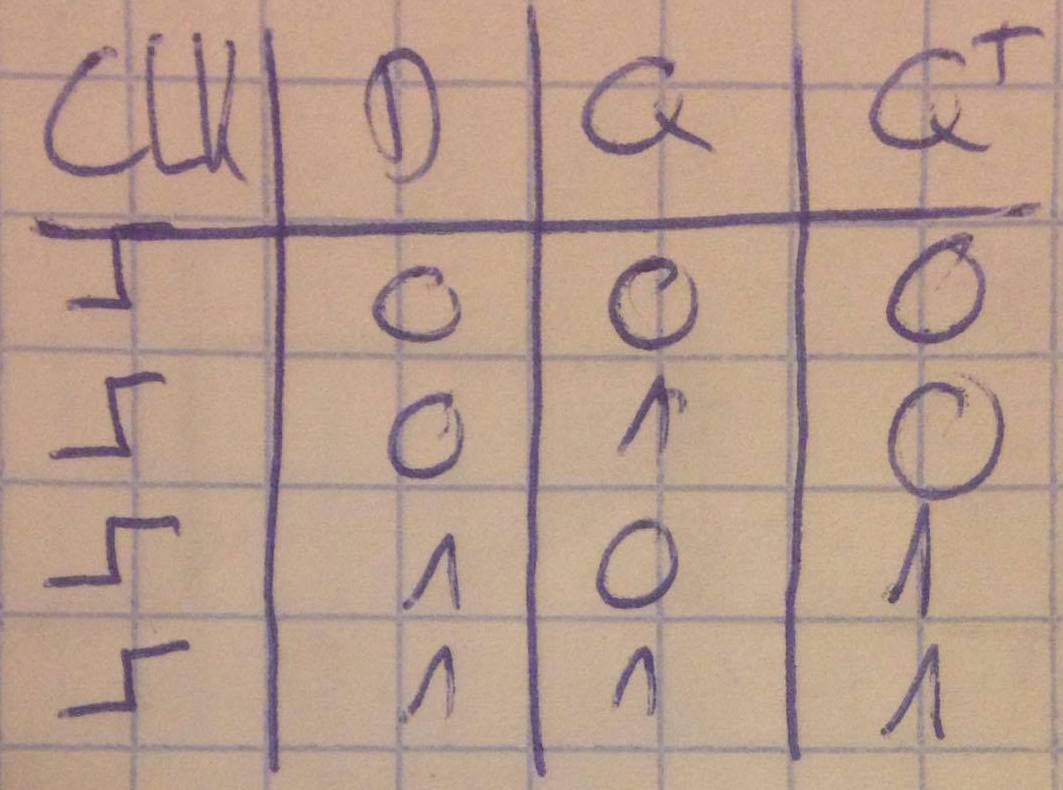 CLK D Q Q^T
0 0 0
0 1 0
1 0 1
1 1 1